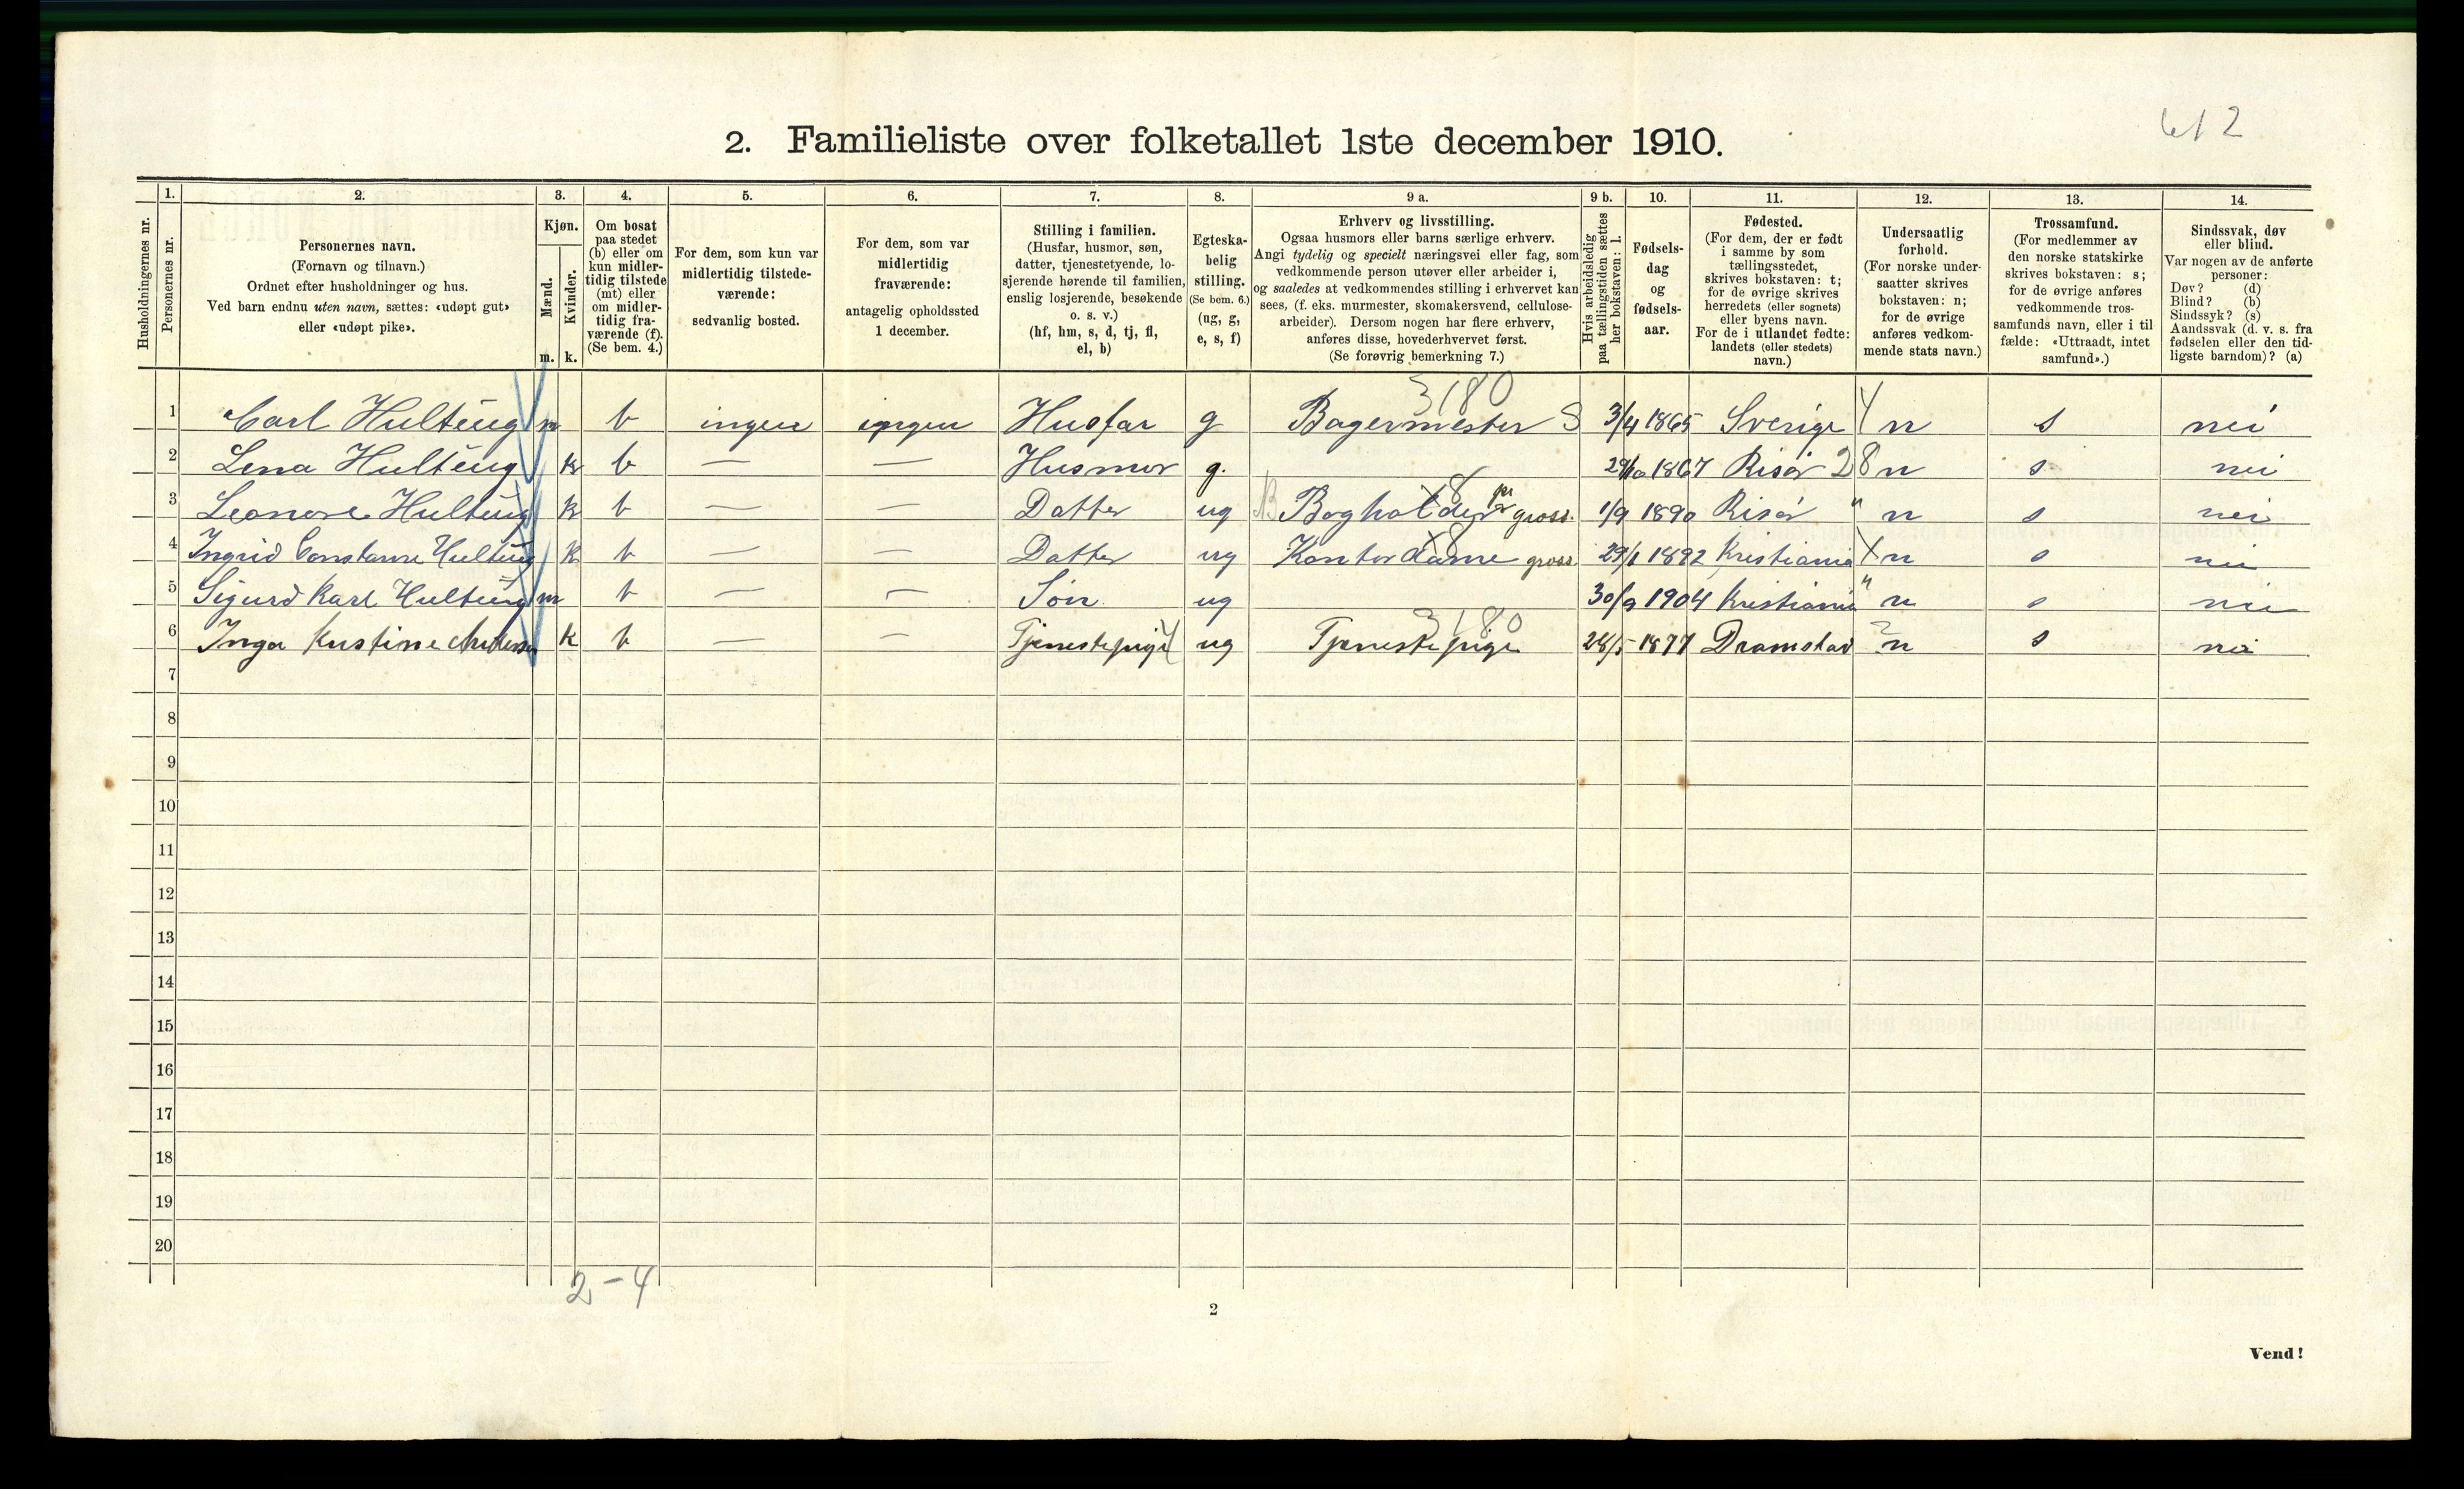 612
2. Familieliste over folketallet 1ste december 1910.
1. 2. 3. 4. 5. 6. 7. 8. 9 a. 9 b. 10. 11. 12. 13. 14.
Husholdningernes nr.
Personernes nr.
Personernes navn.
(Fornavn og tilnavn.)
Ordnet efter husholdninger og hus.
Ved barn endnu uten navn, sættes: «udøpt gut»
eller «udøpt pike».
Kjøn.
Mænd.
Kvinder.
m. k.
Om bosat
paa stedet
(b) eller om
kun midler-
tidig tilstede
(mt) eller
om midler-
tidig fra-
værende (f).
(Se bem. 4.)
For dem, som kun var
midlertidig tilstede-
værende:
sedvanlig bosted.
For dem, som var
midlertidig
fraværende:
antagelig opholdssted
1 december.
Stilling i familien.
(Husfar, husmor, søn,
datter, tjenestetyende, lo-
sjerende hørende til familien,
enslig losjerende, besøkende
o. s. v.)
(hf, hm, s, d, tj, fl,
el, b)
Egteska-
belig
stilling.
(Se bem. 6.)
(ug, g,
e, s, f)
Erhverv og livsstilling.
Ogsaa husmors eller barns særlige erhverv.
Angi tydelig og specielt næringsvei eller fag, som
vedkommende person utøver eller arbeider i,
og saaledes at vedkommendes stilling i erhvervet kan
sees, (f. eks. murmester, skomakersvend, cellulose-
arbeider). Dersom nogen har flere erhverv,
anføres disse, hovederhvervet først.
(Se forøvrig bemerkning 7.)
Hvis arbeidsledig
paa tællingstiden sættes
her bokstaven: l.
Fødsels-
dag
og
fødsels-
aar.
Fødested.
(For dem, der er født
i samme by som
tællingsstedet,
skrives bokstaven: t;
for de øvrige skrives
herredets (eller sognets)
eller byens navn.
For de i utlandet fødte:
landets (eller stedets)
navn.)
Undersaatlig
forhold.
(For norske under-
saatter skrives
bokstaven: n;
for de øvrige
anføres vedkom-
mende stats navn.)
Trossamfund.
(For medlemmer av
den norske statskirke
skrives bokstaven: s;
for de øvrige anføres
vedkommende tros-
samfunds navn, eller i til
fælde: «Uttraadt, intet
samfund».)
Sindssvak, døv
eller blind.
Var nogen av de anførte
personer:
Døv? (d)
Blind? (b)
Sindssyk? (s)
Aandssvak (d. v. s. fra
fødselen eller den tid-
ligste barndom)? (a)
3180
1 Carl Hulteng m b ingen ingen Husfar g Bagermester S 3/4 1865 Sverige n s nei
2 Lena Hulteng k b — — Husmor g. 29/10 1867 Risør 28 n s nei
3 Leonore Hulteng k b — — Datter ug Bogholder gross. 1/9 1890 Risør " n s nei
4 Ingrid Constanse Hulteng k b — — Datter ug Kontordame gross. 29/1 1892 Kristiania n s nei
5 Sigurd Karl Hulteng m b — — Søn ug 30/9 1904 Kristiania " n s nei
3180
6 Inga Kristine Andersen k b — — Tjenestepige ug Tjenestepige 28/5 1877 Dramstad ? n s nei
7
8
9
10
11
12
13
14
15
16
17
18
19
20
2-4
2
Vend!